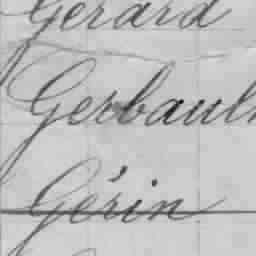 Gérard
Gerbault
Gérin